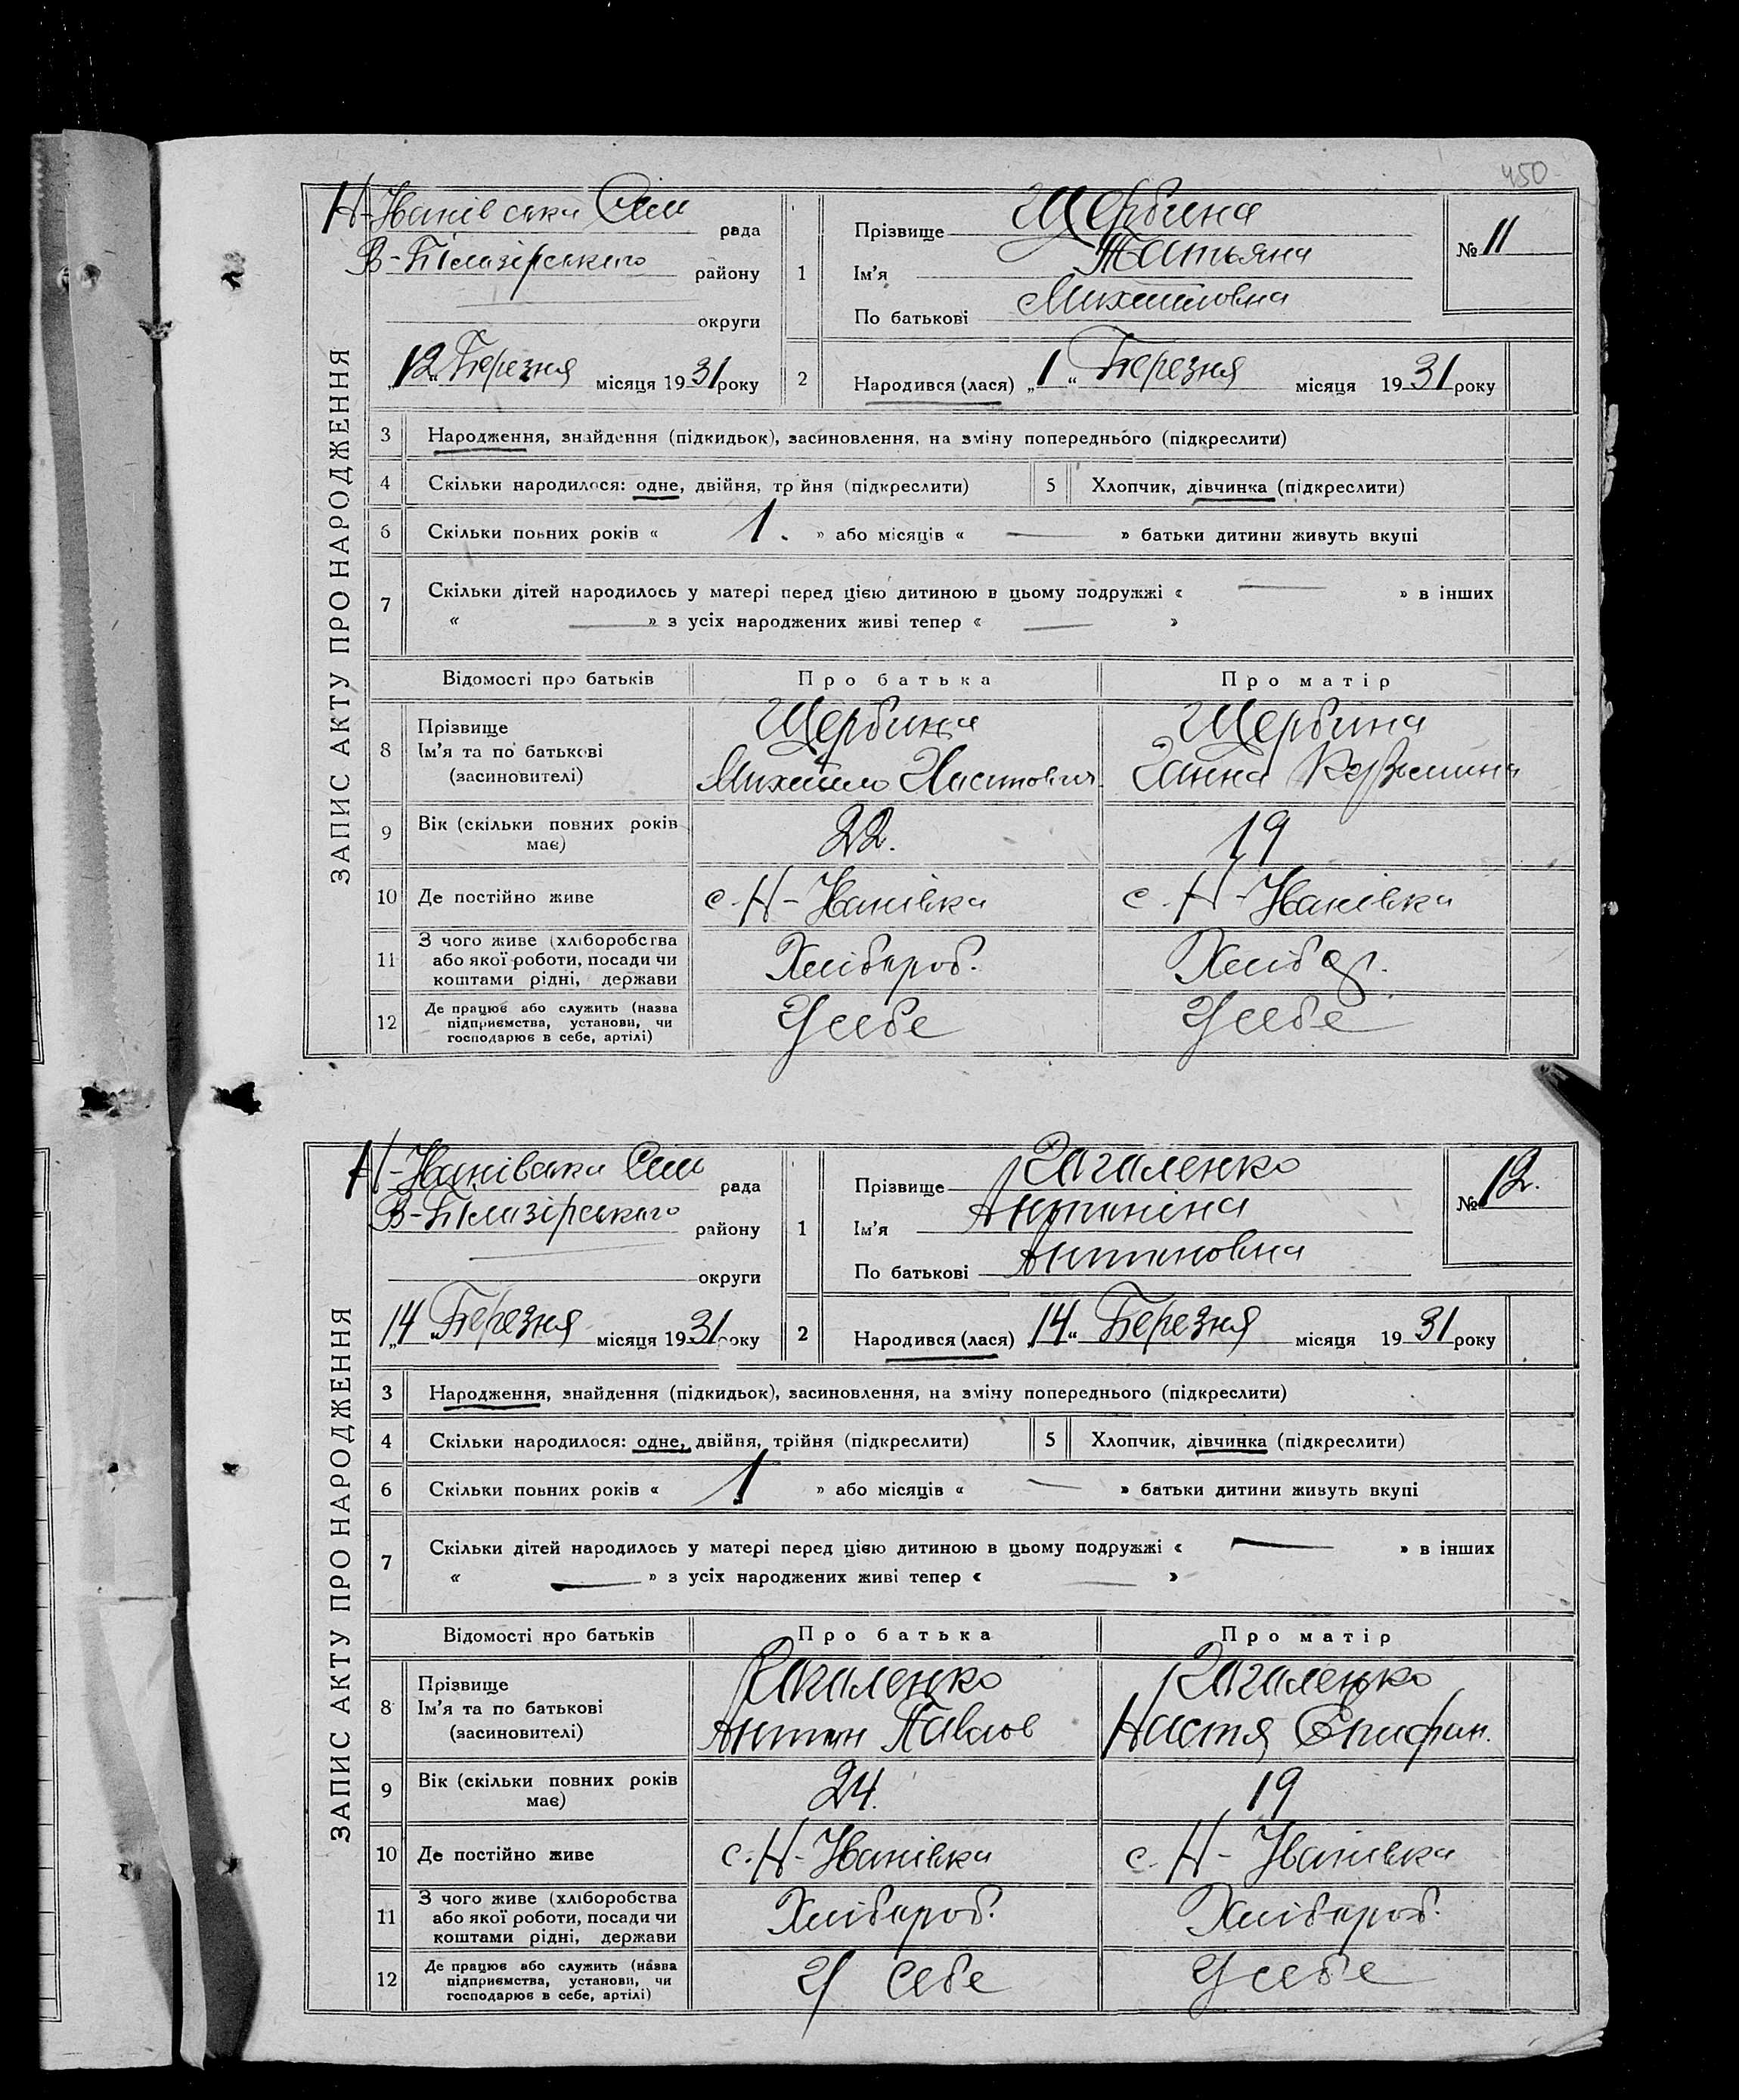 450
ЗАПИС АКТУ ПРО НАРОДЖЕННЯ
Н-Іванівська Сіль рада
В-Білозірського району
округи
„12“ Березня місяця 1931 року
1 Прізвище Щербина
Ім'я Татьяна
По батькові Михайловна
№ 11
2 Народився (лася) „1“ Березня місяця 1931 року
3 Народження, знайдення (підкидьок), засиновлення, на зміну попереднього (підкреслити)
4 Скільки народилося: одне, двійня, трійня (підкреслити) 5 Хлопчик, дівчинка (підкреслити)
6 Скільки повних років « 1. » або місяців « — » батьки дитини живуть вкупі
7 Скільки дітей народилось у матері перед цією дитиною в цьому подружжі « — » в інших
« — » з усіх народжених живі тепер « — »
Відомості про батьків Про батька Про матір
8 Прізвище Щербина Щербина
Ім'я та по батькові
(засиновителі) Михайло Ганна
9 Вік (скільки повних років має) 22. 19
10 Де постійно живе с. Н-Іванівка с. Н-Іванівка
11 З чого живе (хліборобства
або якої роботи, посади чи Хлібороб.
коштами рідні, держави
12 Де працює або служить (назва
підприємства, установи, чи У себе У себе
господарює в себе, артілі)
ЗАПИС АКТУ ПРО НАРОДЖЕННЯ
Н-Іванівська Сіль рада
В-Білозірського району
округи
„14“ Березня місяця 1931 року
1 Прізвище Рагаленко
Ім'я Антоніна
По батькові Антоновна
№ 12.
2 Народився (лася) „14“ Березня місяця 1931 року
3 Народження, знайдення (підкидьок), засиновлення, на зміну попереднього (підкреслити)
4 Скільки народилося: одне, двійня, трійня (підкреслити) 5 Хлопчик, дівчинка (підкреслити)
6 Скільки повних років « 1 » або місяців « — » батьки дитини живуть вкупі
7 Скільки дітей народилось у матері перед цією дитиною в цьому подружжі « — » в інших
« — » з усіх народжених живі тепер « — »
Відомості про батьків Про батька Про матір
8 Прізвище Рагаленко Рагаленко
Ім'я та по батькові
(засиновителі) Антон Павлов Настя Епифан.
9 Вік (скільки повних років має) 24. 19
10 Де постійно живе с. Н-Іванівка с. Н-Іванівка
11 З чого живе (хліборобства
або якої роботи, посади чи Хлібороб. Хлібороб.
коштами рідні, держави
12 Де працює або служить (назва
підприємства, установи, чи У себе У себе
господарює в себе, артілі)